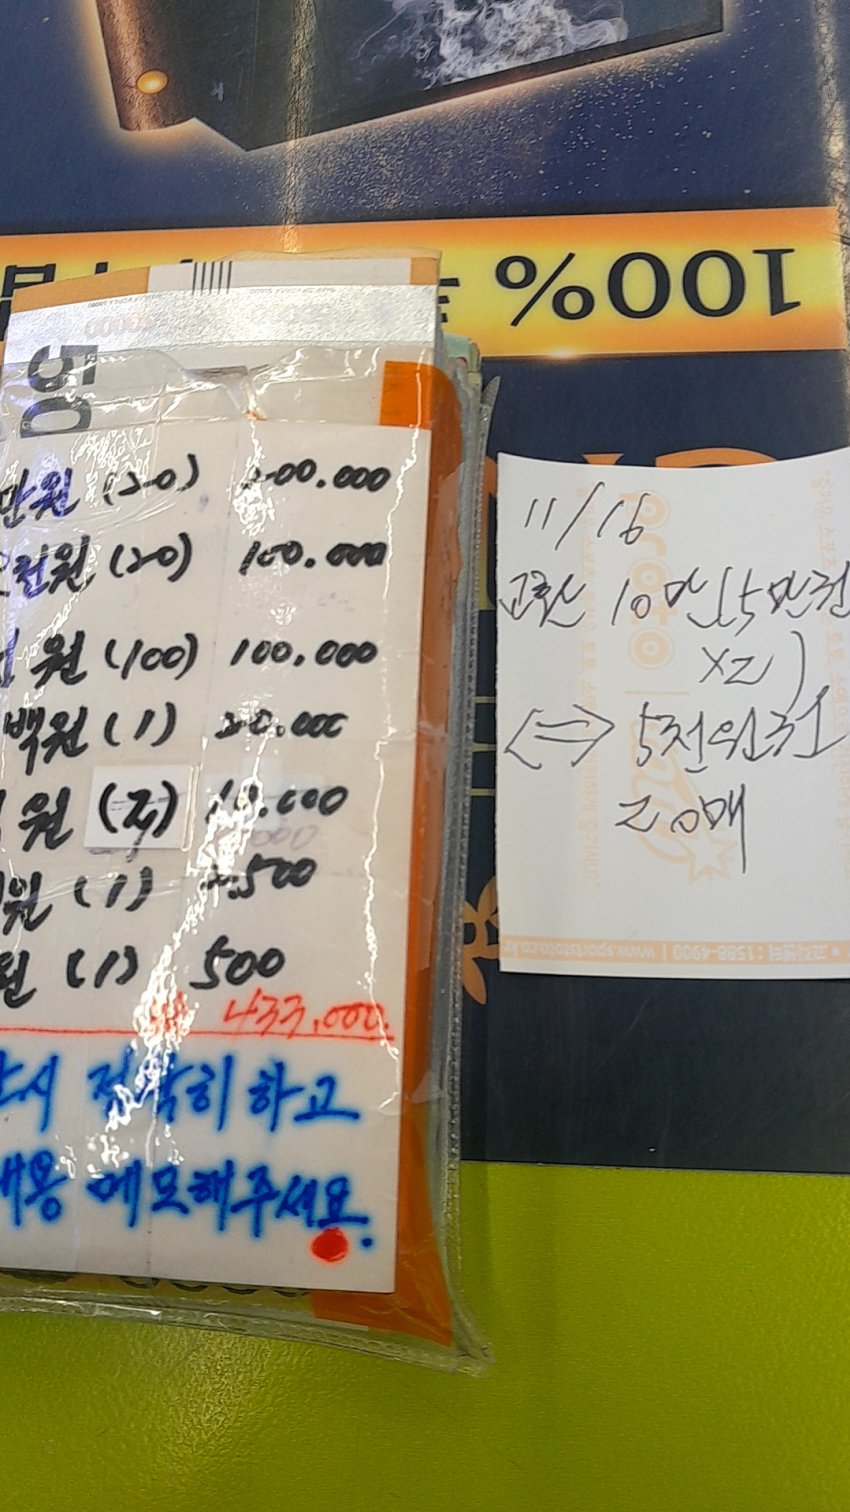 100%
50
만원 (20) 200.000
천원 (20) 100.000
원 (100) 100,000
백원 (1) 20.000
원 (2) 10.000
원 (1) 2.500
원 (1) 500
433,000
시 정확히 하고
내용 메모해주세요.
11/16
10만 (5만권
X2)
<=> 5천원권
20매
proto
고객센터 : 1588-4900 | www.sportstoto.co.kr